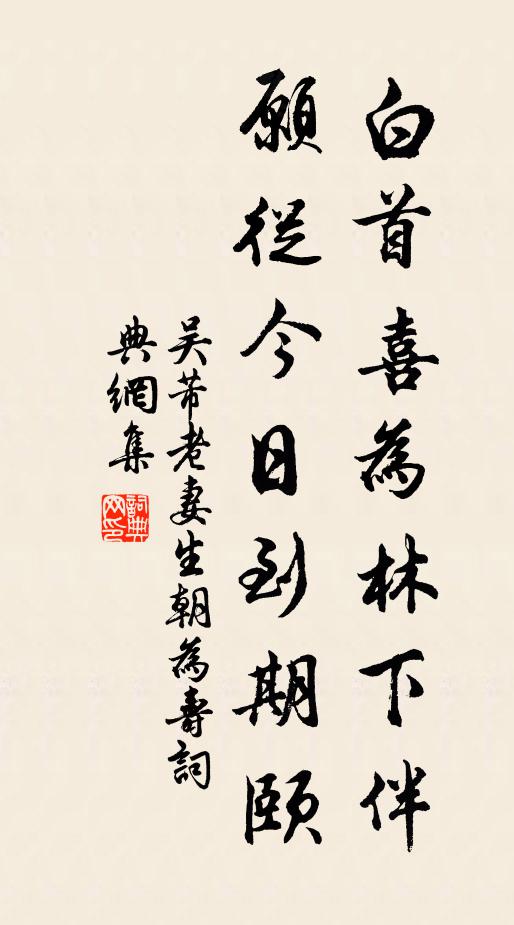 白首喜為林下伴
願從今日到期頤
吴芾老妻生朝為壽詞
典網集
詞典網印